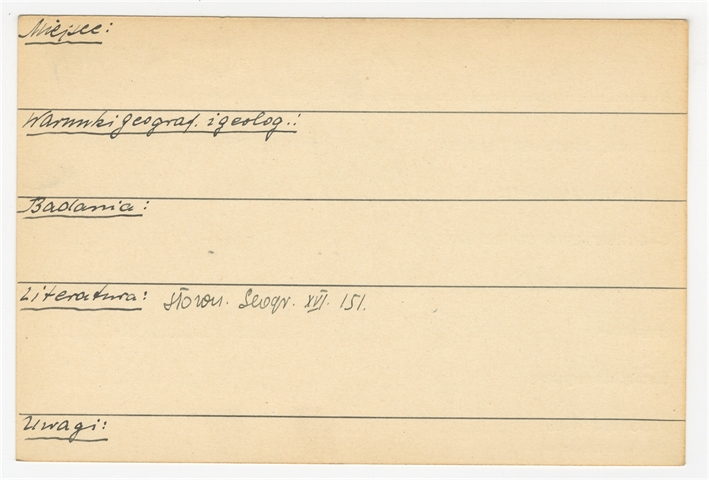 Miejsce:
Warunki geograf. i geolog.:
Badania:
Literatura: Słown. Geogr. XVI. 151.
Uwagi: